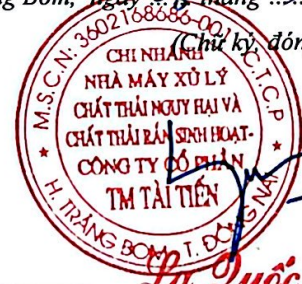 ng Bom, ngày
tháng
(Chữ ký, đón
M.S.C.N: 3602168686-001-C.T.C.P
CHI NHÁNH
NHÀ MÁY XỬ LÝ
CHẤT THẢI NGUY HẠI VÀ
CHẤT THẢI RẮN SINH HOẠT-
CÔNG TY CỔ PHẦN
TM TÀI TIẾN
H. TRẢNG BOM - T. ĐỒNG NAI
Quốc